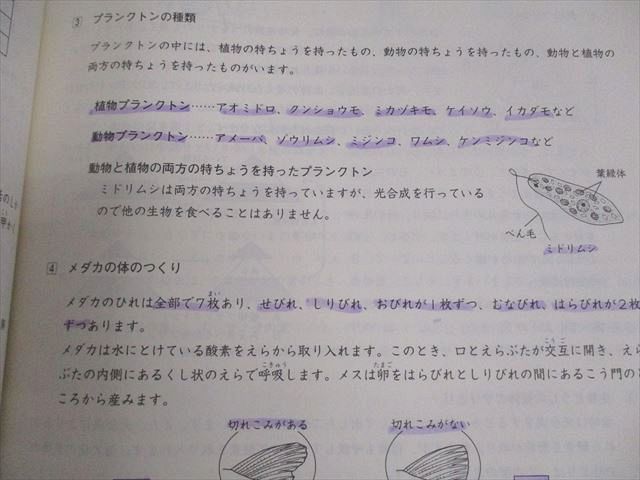 ③ プランクトンの種類
プランクトンの中には、植物の特ちょうを持ったもの、動物の特ちょうを持ったもの、動物と植物の
両方の特ちょうを持ったものがいます。
植物プランクトン……アオミドロ、クンショウモ、ミカヅキモ、ケイソウ、イカダモなど
動物プランクトン……アメーバ、ゾウリムシ、ミジンコ、ワムシ、ケンミジンコなど
動物と植物の両方の特ちょうを持ったプランクトン
ミドリムシは両方の特ちょうを持っていますが、光合成を行っている
ので他の生物を食べることはありません。
葉緑体
べん毛
ミドリムシ
④ メダカの体のつくり
メダカのひれは全部で7枚あり、せびれ、しりびれ、おびれが1枚ずつ、むなびれ、はらびれが2枚
ずつあります。
メダカは水にとけている酸素をえらから取り入れます。このとき、口とえらぶたが交互に開き、えら
ぶたの内側にあるくし状のえらで呼吸します。メスは卵をはらびれとしりびれの間にあるこう門のと
ころから産みます。
切れこみがある
切れこみがない